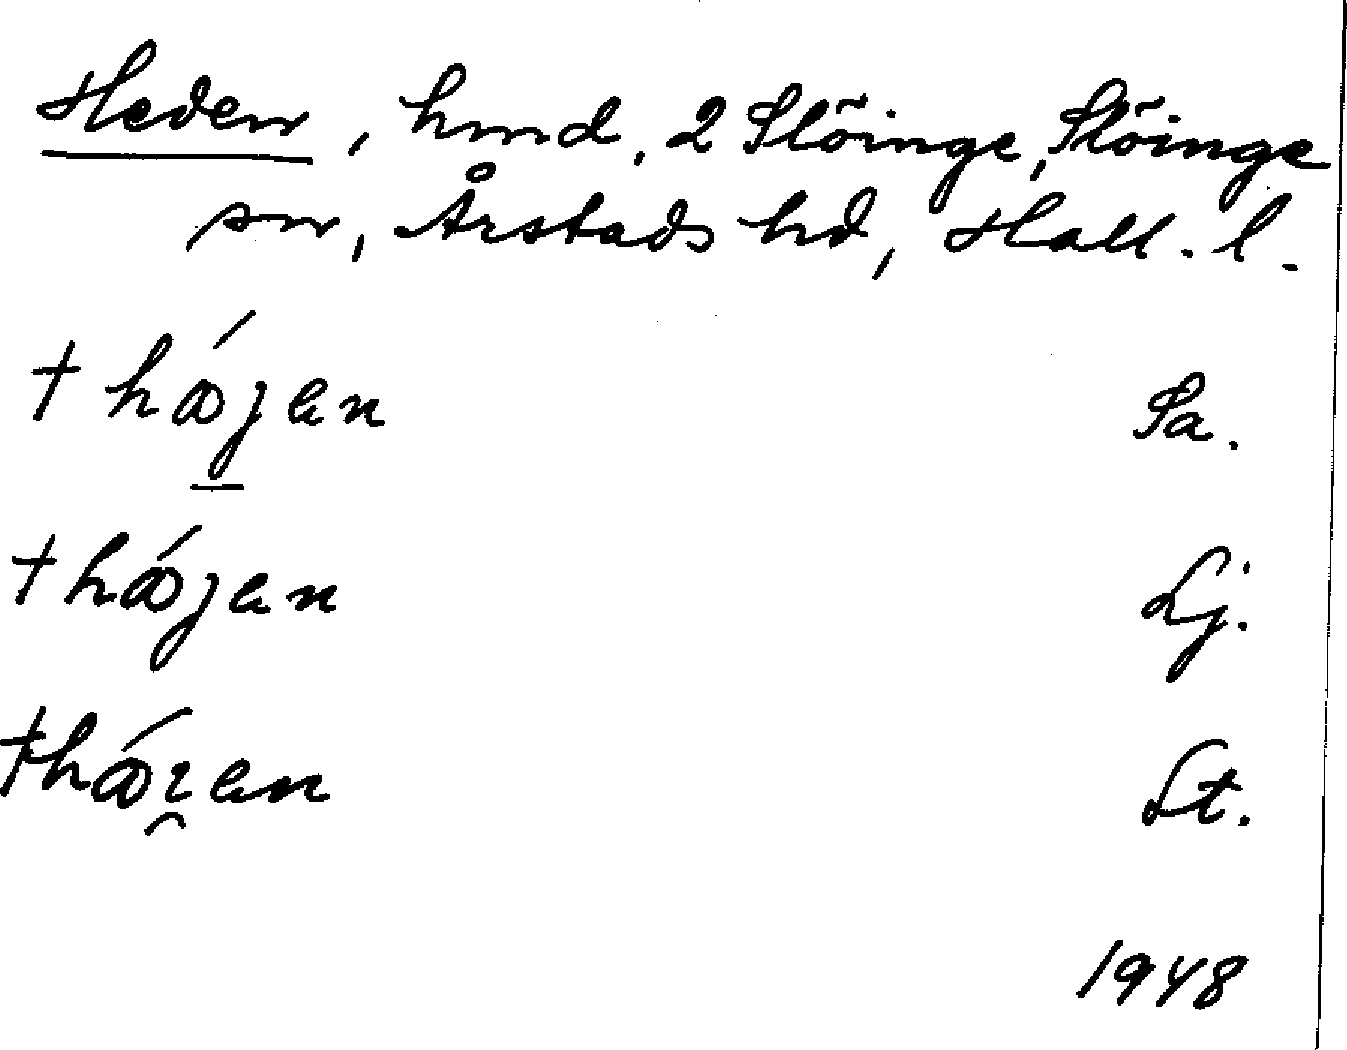 Heden, hmd, 2 Slöinge, Slöinge
sn, Årstads hd, Hall. l.
† hǽjen Sa.
† hǽjen Lj.
† hǽi̯en St.
1948